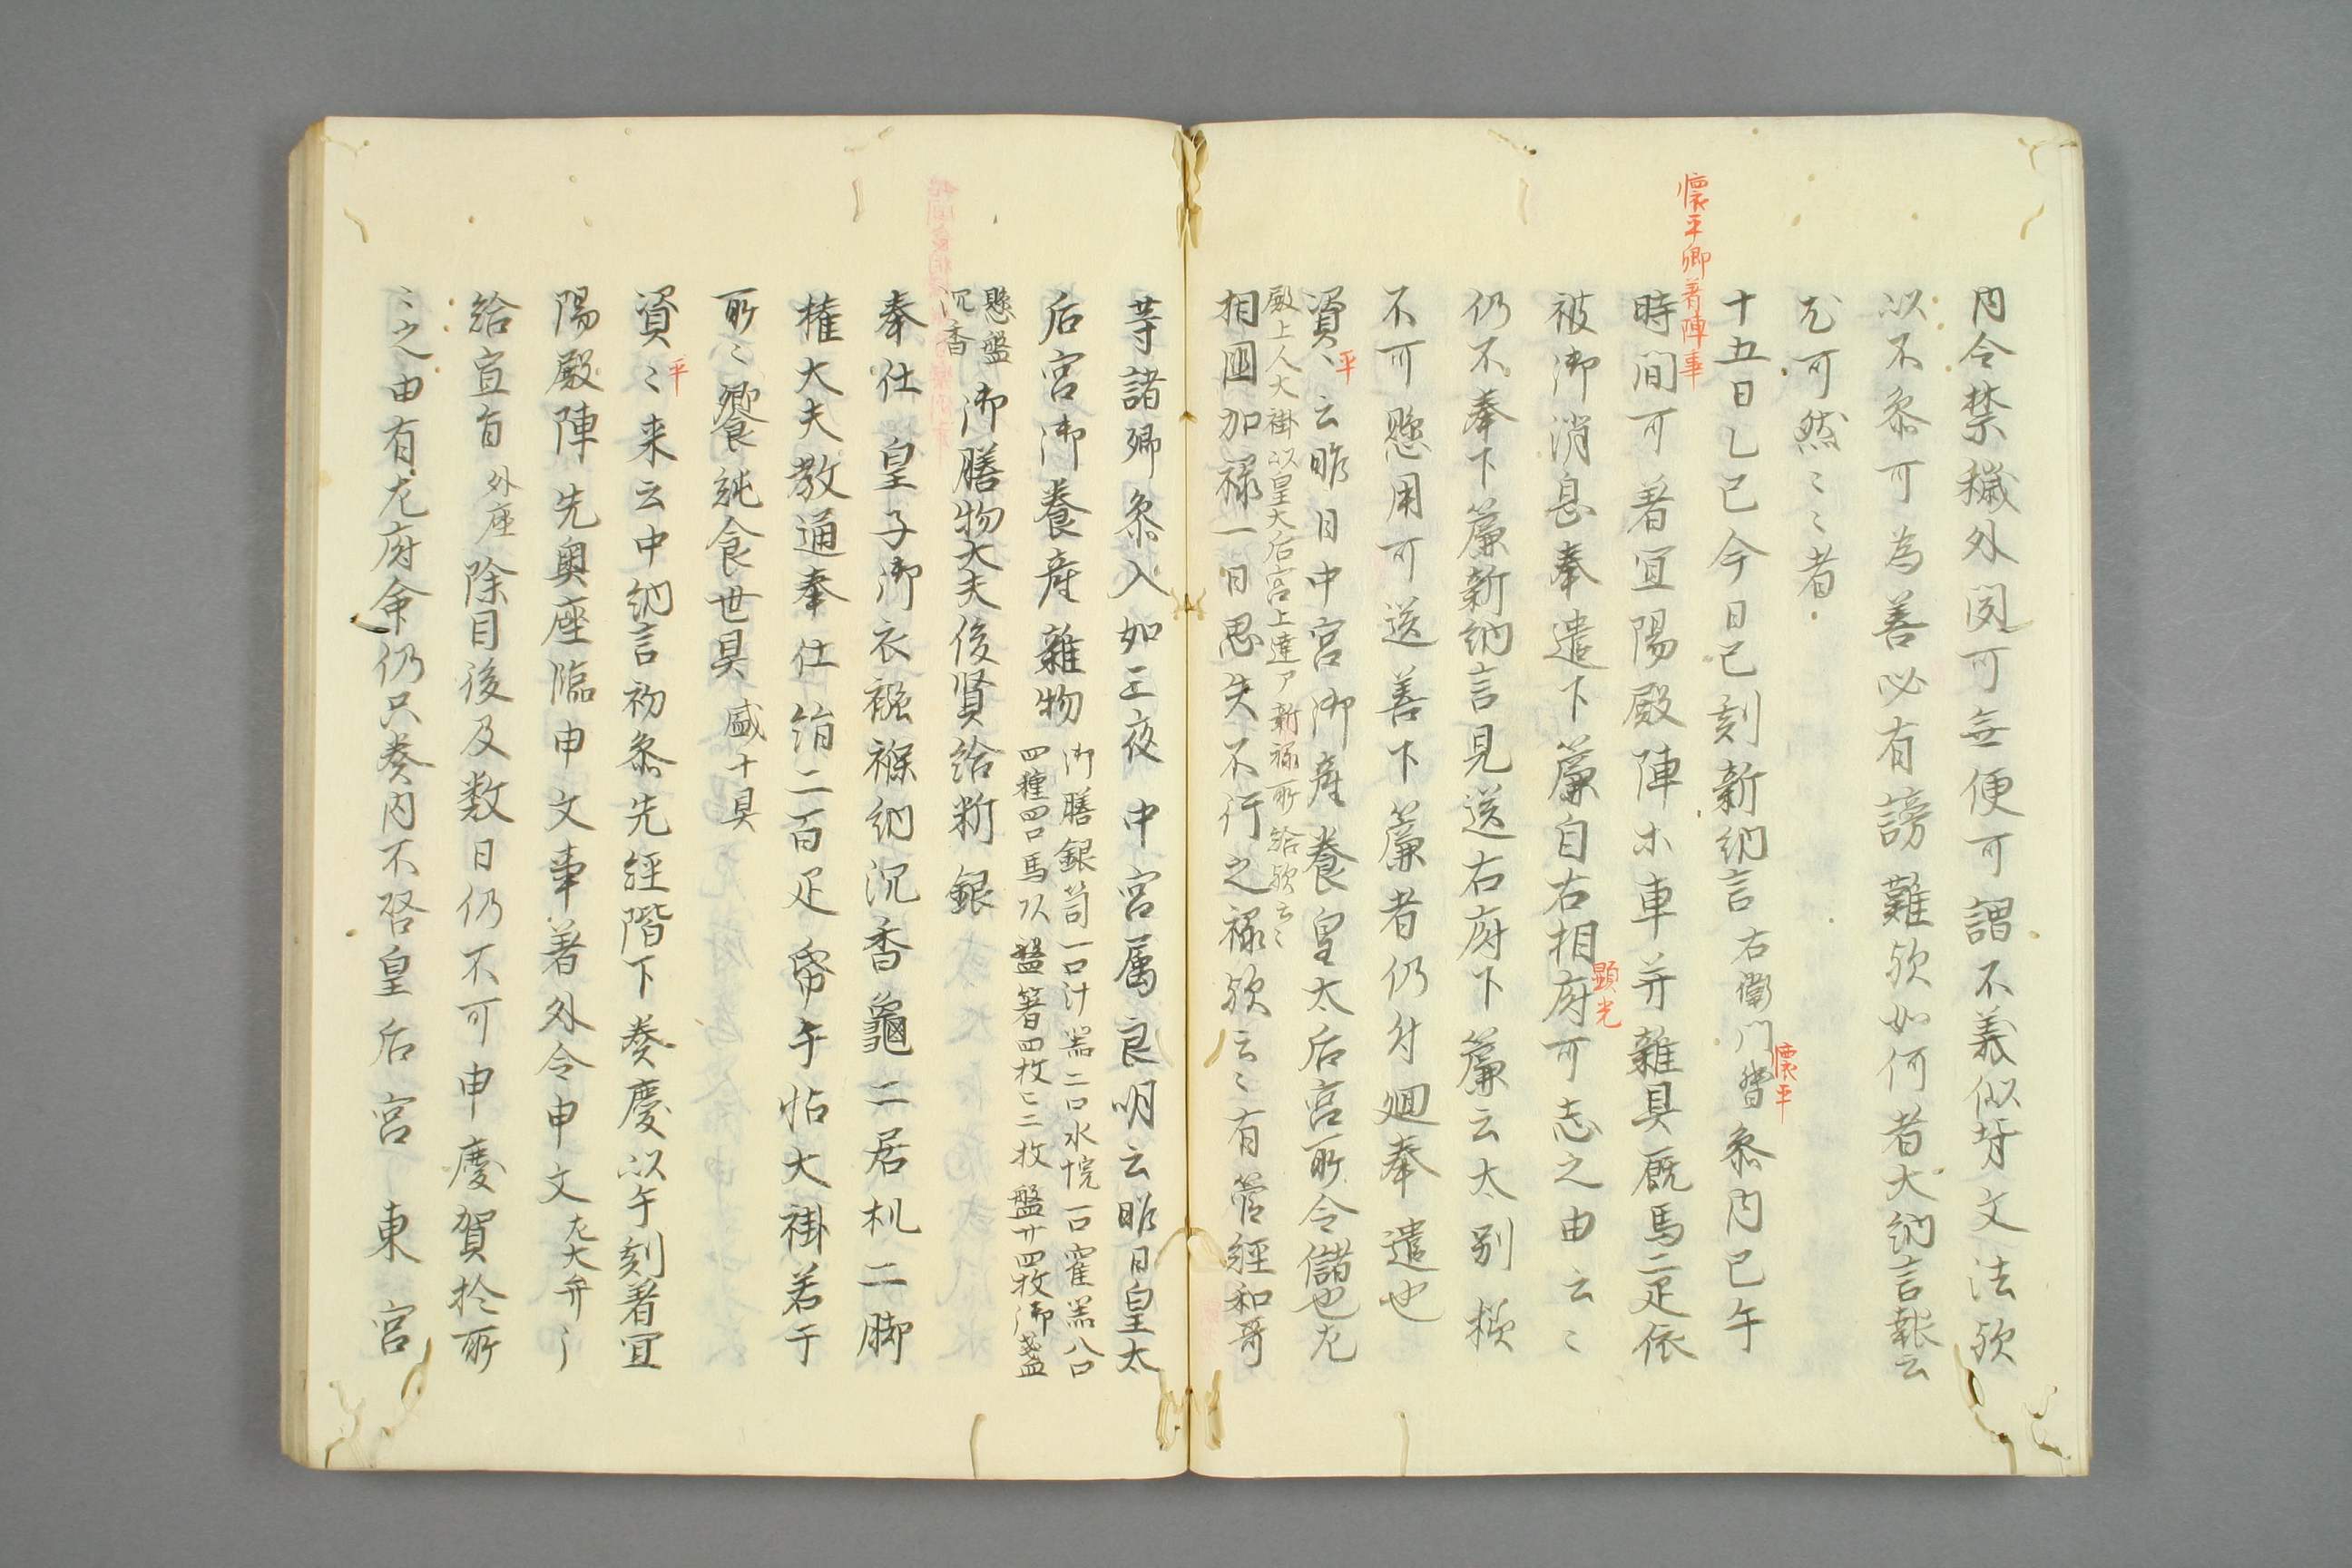 内令禁穢外閔可無便可謂不義似好文法欤
以不参可為善必有謗難欤如何者大納言報云
尤可然〻〻者
懐平卿着陣事
十五日乙巳今日巳刻新納言右衛門督参内巳午
懐平
時間可着宜陽殿陣小車并雑具厩馬二疋依
被御消息奉遣下簾自右相府可志之由云〻
顕光
仍不奉下簾新納言見送右府下簾云太別様
不可懸用可送善下簾者仍付廻奉遣也
資〻云昨日中宮御産養皇太后宮所令儲也左
平
殿上人大褂以皇大后宮上達ア新禄所給欤云〻
相国加禄一日思失不行之禄欤云〻有管経和哥
等諸卿参入如三夜中宮属良明云昨日皇太
后宮御養産雑物
御膳銀笥一口汁器二口水垸一口窪器八口
四種四口馬以盤箸四枚匕二枚盤廿四枚御盞
懸盤
沉香
御膳物大夫俊賢給断銀
奉仕 皇子御衣襁褓納沉香龜二居机二脚
権大夫教通奉仕絹二百疋帛午怗大褂若干
所〻饗飩食世具盛十具
資〻来云中納言初参先經階下奏慶以午刻着宜
平
陽殿陣先奥座臨申文事着外令申文
左大弁〻
給宣旨
外座
除目後及数日仍不可申慶賀於所
〻之由有左府命仍只奏内不啓皇后宮東宮